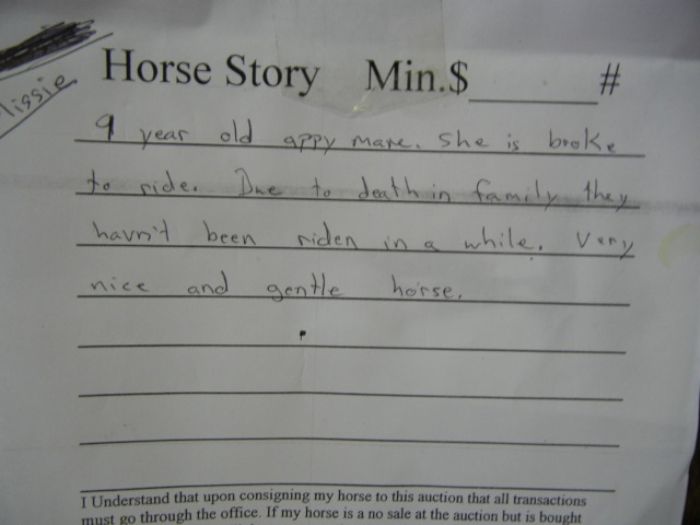 Horse Story Min.$ #
9 year old appy mare. She is broke
to ride. Due to death in family they
havn't been riden in a while. Very
nice and gentle horse.
I Understand that upon consigning my horse to this auction that all transactions
must go through the office. If my horse is a no sale at the auction but is bought